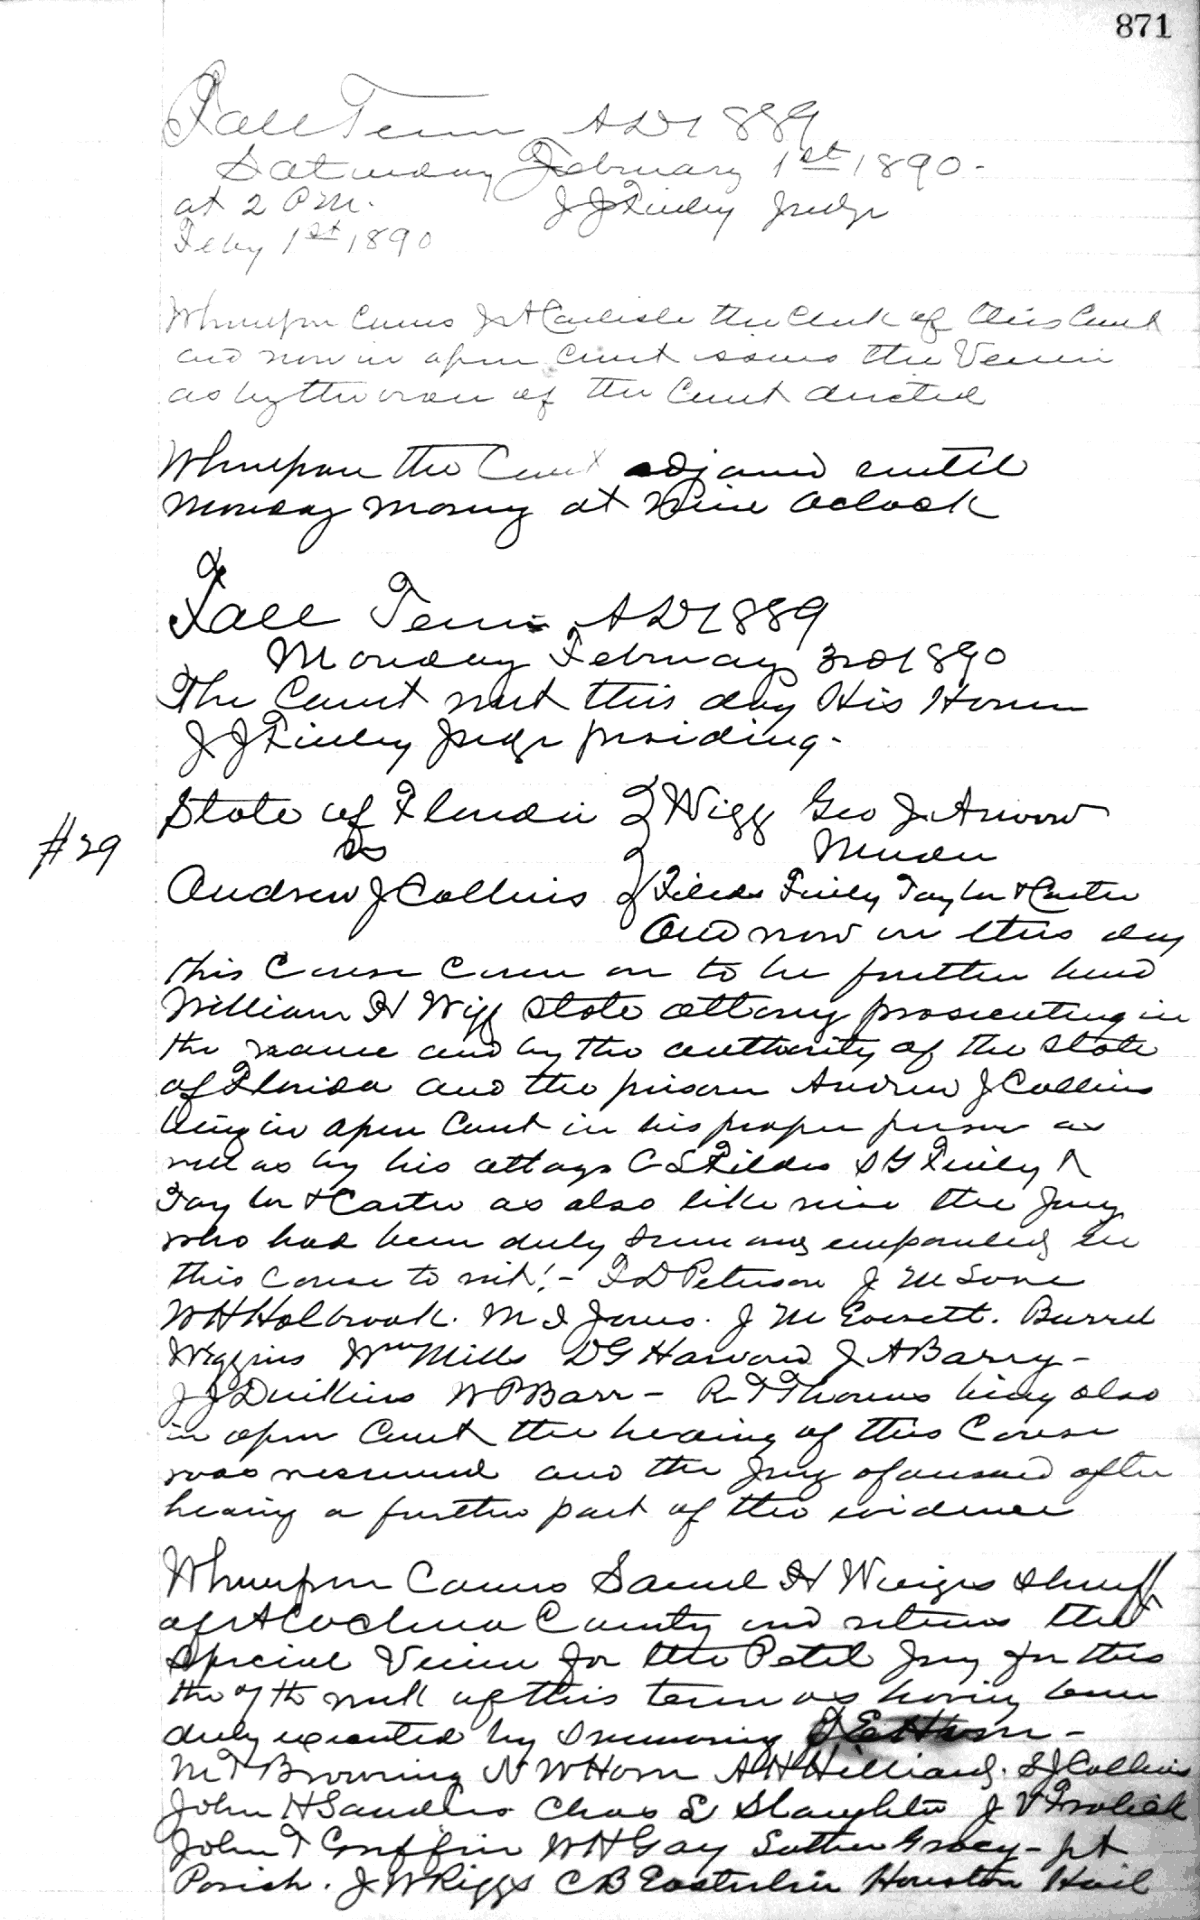 871
Fall Term AD 1889
Saturday February 1st 1890-
at 2 PM. J J Finley Judge
Feby 1st 1890
Whereupon Comes J A Carlisle the Clerk of this Court
and now in open Court issues the Venire
as by the order of the Court directed
Whereupon the Court adjourned until
Monday Morning at Nine Oclock
Fall Term AD 1889
Monday February 3rd 1890
The Court met this day His Honor
J J Finley Judge presiding-
State of Florida Wigg Geo J Arrow
#29 vs Murder
Andrew J Collins Fildes Finley Taylor & Carter
And now on this day
this Cause Came on to be further heard
William H Wigg State attorney prosecuting in
the name and by the authority of the State
of Florida and the prisoner Andrew J Collins
being in open Court in his proper person as
well as by his attorneys C L Fildes S G Finley
Taylor & Carter as also like wise the Jury
who had been duly Summoned empanelled in
this Cause to wit!- T D Peterson J M Lane
W H Holbrook. M I Jones. J M Everett. Burrel
Wiggins Wm Mills D G Harvard J A Barry-
J J Dukins W P Barr- R T Thomas being also
in open Court the hearing of this Cause
was resumed and the Jury aforesaid after
hearing a further part of the evidence
Whereupon Comes Samuel H Wienges Sheriff
of Alachua County and returns the
Special Venire for the Petit Jury for this
the 7th week of this term as having been
duly executed by Summoning
M T Browning N W Horn A H Hilliard. S J Collins
John H Sanders Chas E Slaughter J V Frolick
John T Griffin W H Gay Luther Gracy-
Parish. J W Riggs C B Easterlin Houston Hail